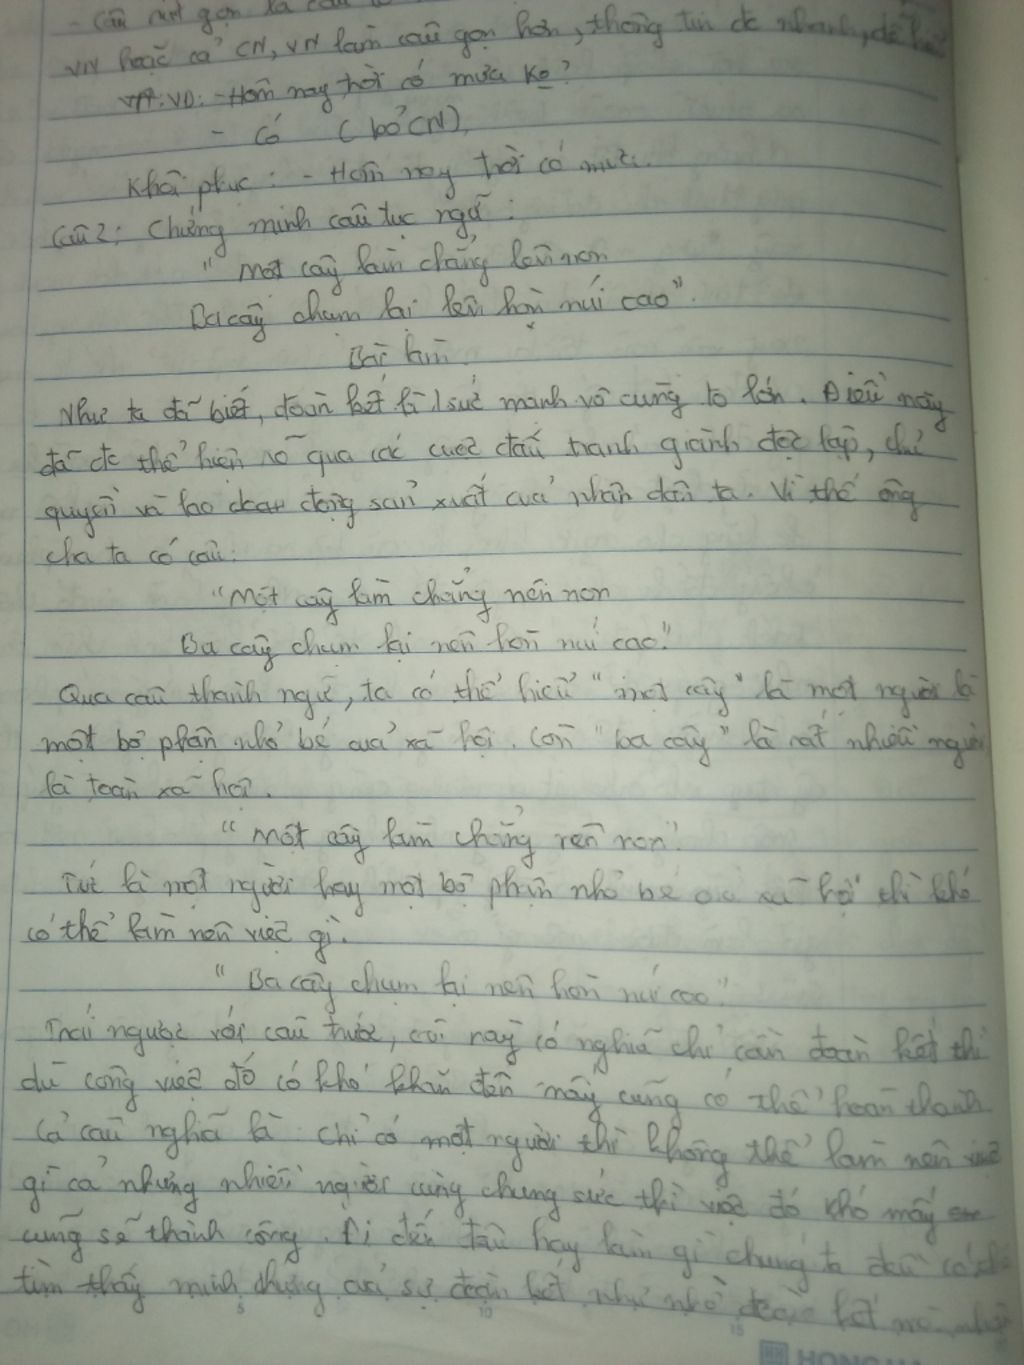 - Câu rút gọn là câu
VN hoặc cả CN, VN làm câu gọn hơn, thông tin đc nhanh, dễ
VD: - Hôm nay trời có mưa ko?
- Có (bỏ CN).
Khôi phục: - Hôm nay trời có mưa.
Câu 2: Chứng minh câu tục ngữ:
"Một cây làm chẳng lên non
Ba cây chụm lại lên hòn núi cao".
Bài làm
Như ta đã biết, đoàn kết là 1 sức mạnh vô cùng to lớn. Điều này
đã đc thể hiện rõ qua các cuộc đấu tranh giành độc lập, chủ
quyền và lao động sản xuất của nhân dân ta. Vì thế ông
cha ta có câu:
"Một cây làm chẳng nên non
Ba cây chụm lại nên hòn núi cao."
Qua câu thành ngữ, ta có thể hiểu "một cây" là một người là
một bộ phận nhỏ bé của xã hội. Còn "ba cây" là rất nhiều người
là toàn xã hội.
"Một cây làm chẳng nên non."
Tức là một người hay một bộ phận nhỏ bé của xã hội thì khó
có thể làm nên việc gì.
"Ba cây chụm lại nên hòn núi cao."
Trái ngược với câu trước, câu này có nghĩa chỉ cần đoàn kết thì
dù công việc đó có khó khăn đến mấy cũng có thể hoàn thành
Cả câu nghĩa là: chỉ có một người thì không thể làm nên việc
gì cả nhưng nhiều người cùng chung sức thì việc đó khó mấy
cũng sẽ thành công. Đi đến đâu hay làm gì chúng ta đều có thể
tìm thấy minh chứng của sự đoàn kết như nhờ đoàn kết mà
5 10 15
HONG HA